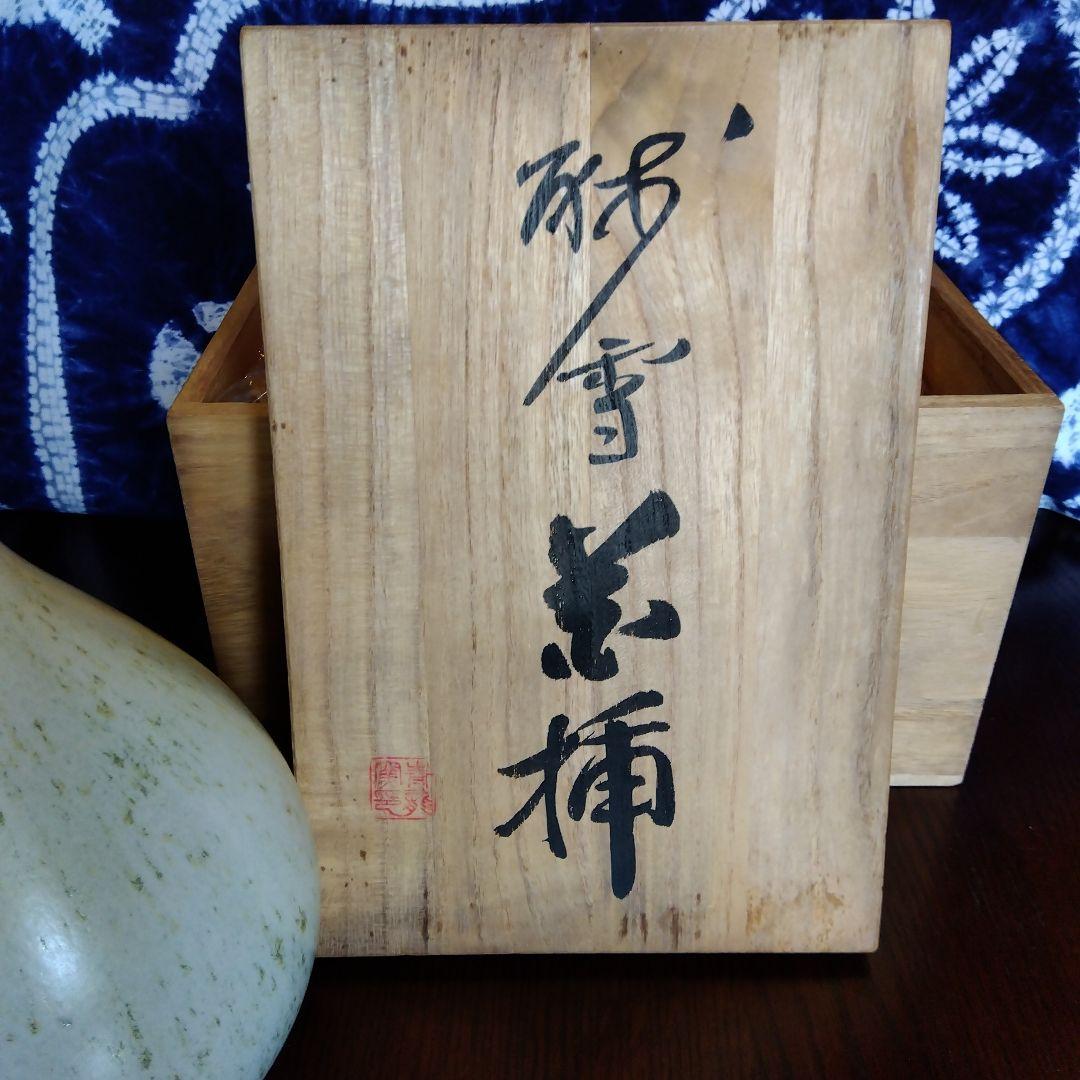 砂雪花挿